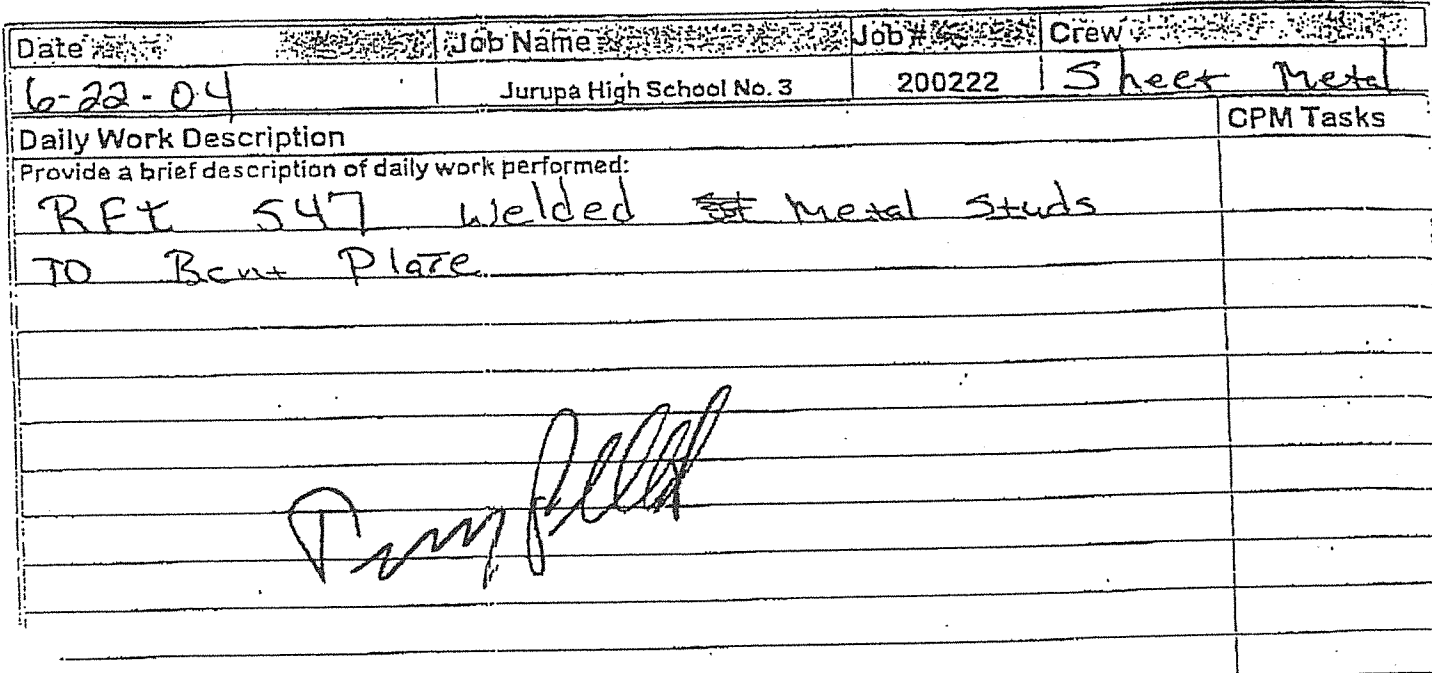 Date Job Name Job # Crew
6-22-04 Jurupa High School No. 3 200222 Sheet Metal
Daily Work Description CPM Tasks
Provide a brief description of daily work performed:
547 Welded Metal Studs
TO Bent Plate